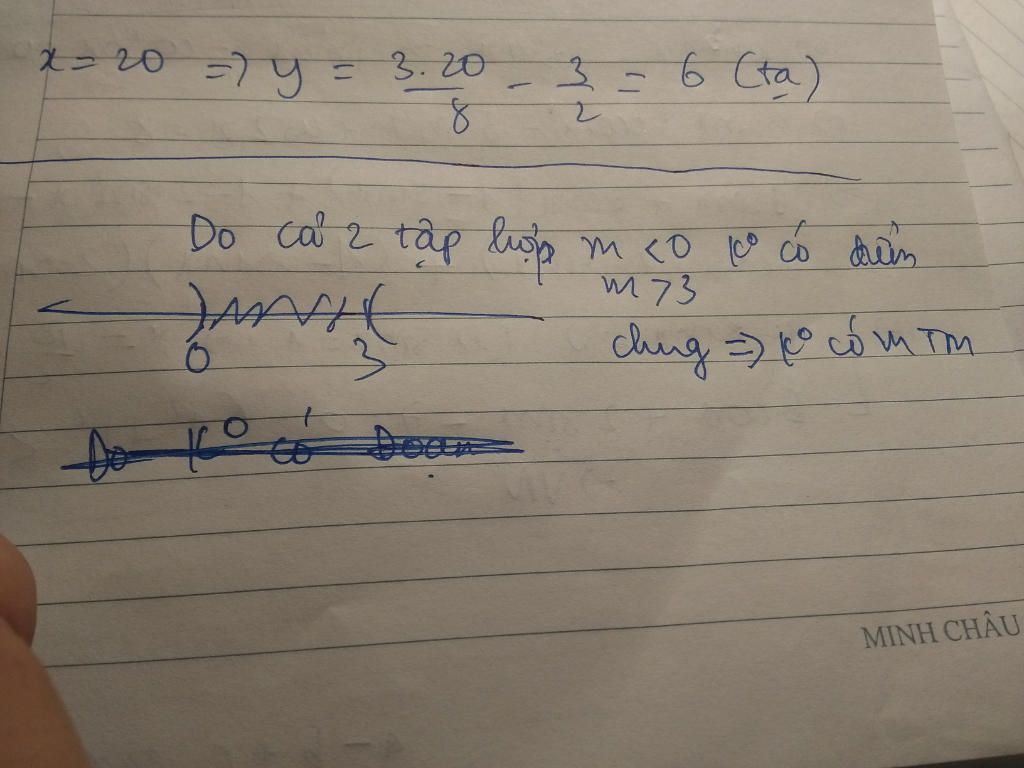 x = 20 => y = 3.20/8 - 3/2 = 6 (tạ)
Do cả 2 tập hợp m < 0 k° có điểm
m > 3
0 3
chung => k° có m TM
Do k° có Đoạn
MINH CHÂU